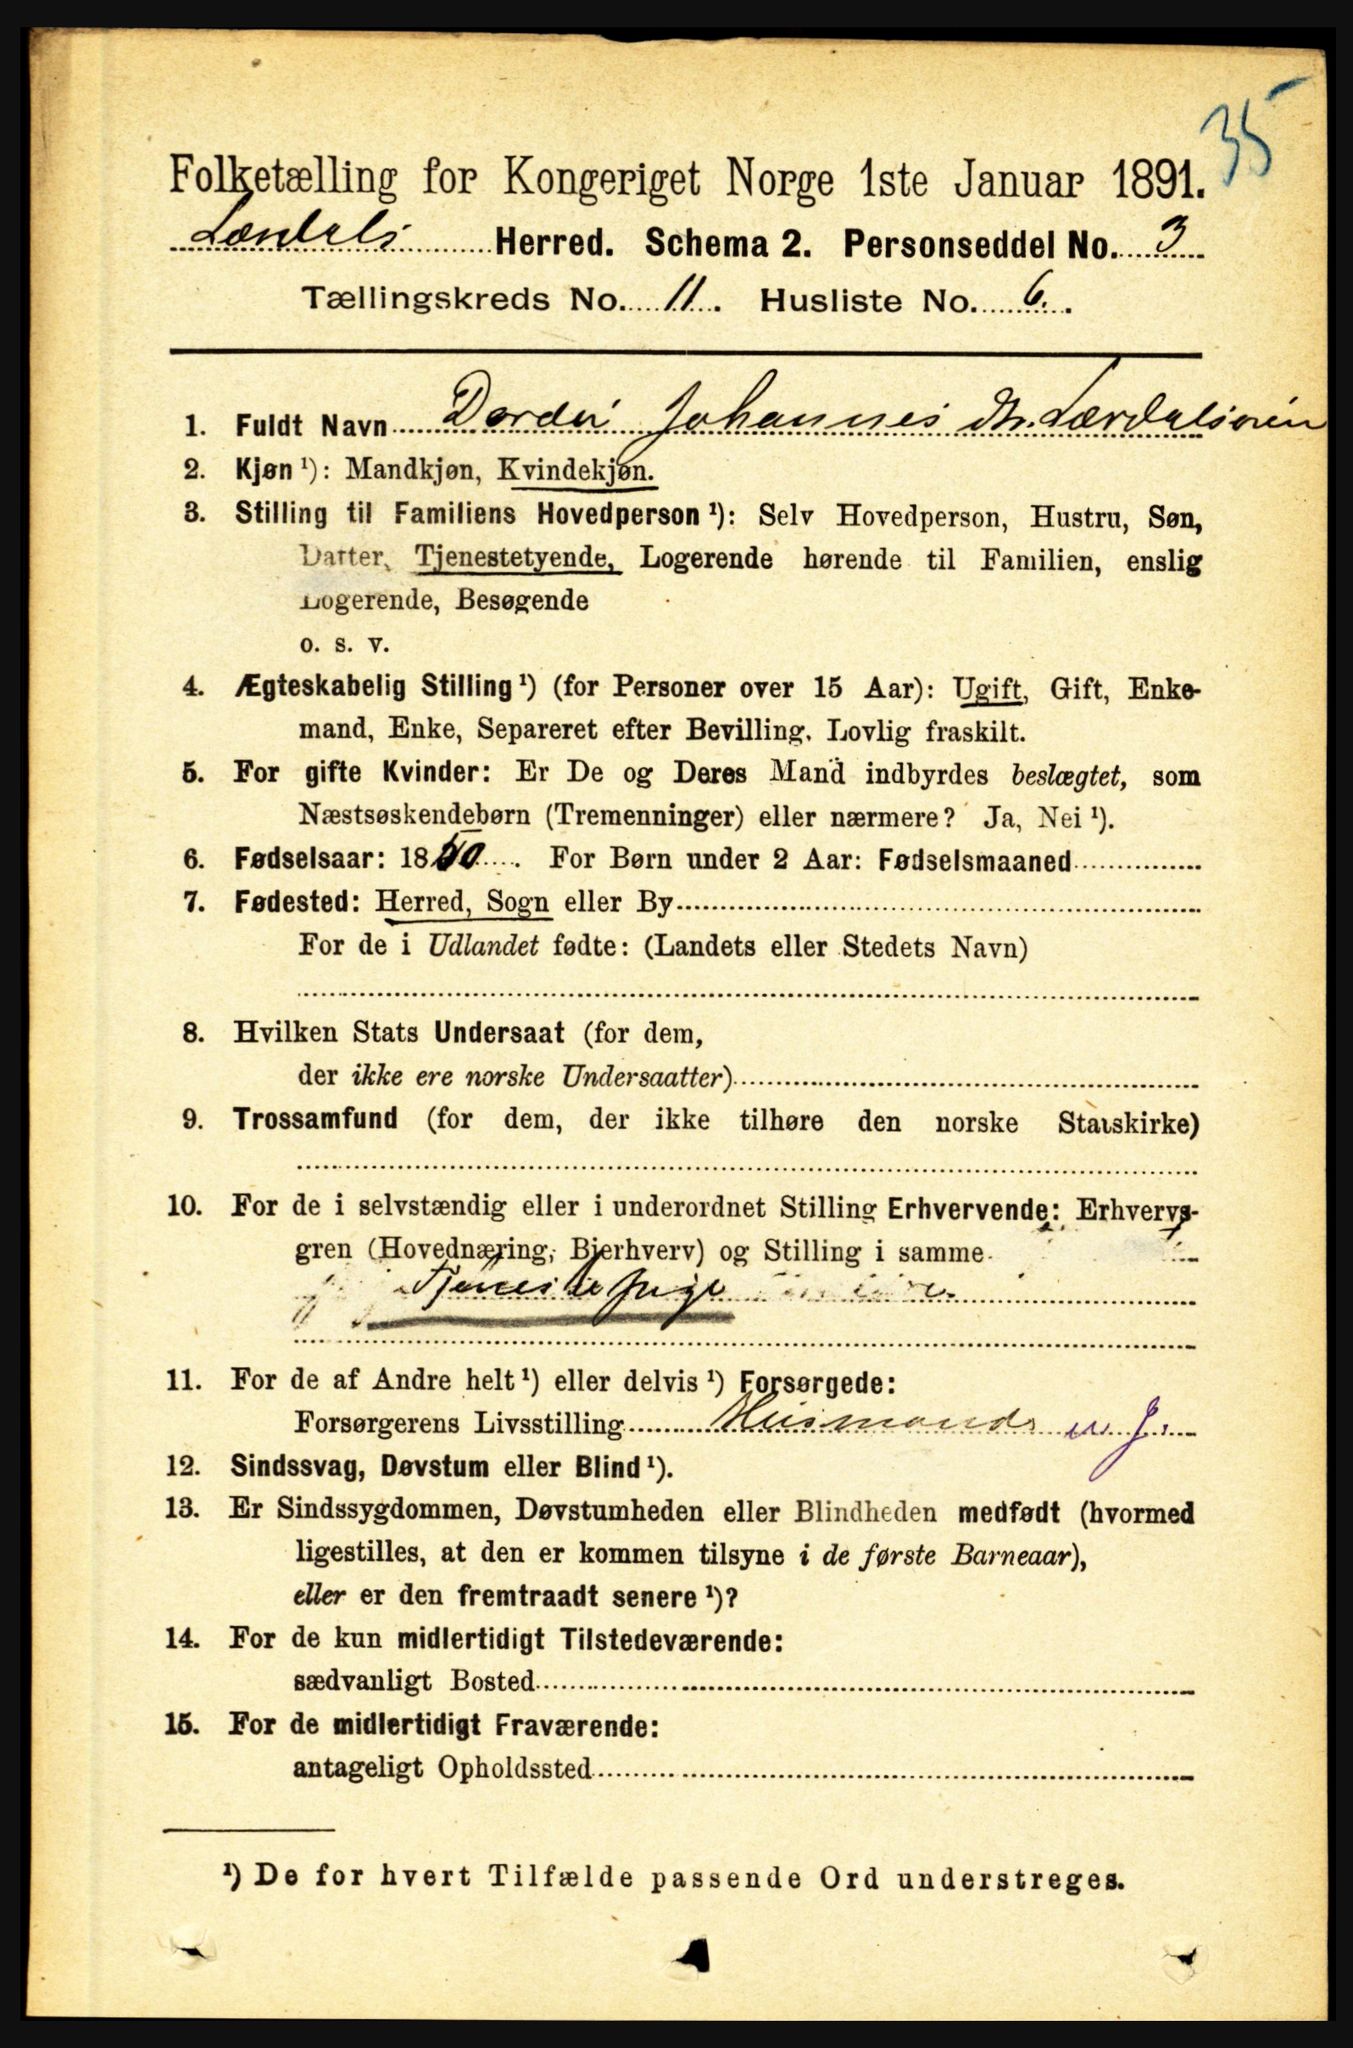 35
Folketælling for Kongeriget Norge 1ste Januar 1891.
Lærdals Herred. Schema 2. Personseddel No. 3
Tællingskreds No. 11. Husliste No. 6.
1. Fuldt Navn Dordei Johannes dtr. Lærdalsøren
2. Kjøn ¹): Mandkjøn, Kvindekjøn.
3. Stilling til Familiens Hovedperson ¹): Selv Hovedperson, Hustru, Søn,
Datter, Tjenestetyende, Logerende hørende til Familien, enslig
Logerende, Besøgende
o. s. v.
4. Ægteskabelig Stilling ¹) (for Personer over 15 Aar): Ugift, Gift, Enke-
mand, Enke, Separeret efter Bevilling, Lovlig fraskilt.
5. For gifte Kvinder: Er De og Deres Mand indbyrdes beslægtet, som
Næstsøskendebørn (Tremenninger) eller nærmere? Ja, Nei ¹).
6. Fødselsaar: 1850. For Børn under 2 Aar: Fødselsmaaned
7. Fødested: Herred, Sogn eller By
For de i Udlandet fødte: (Landets eller Stedets Navn)
8. Hvilken Stats Undersaat (for dem,
der ikke ere norske Undersaatter)
9. Trossamfund (for dem, der ikke tilhøre den norske Statskirke)
10. For de i selvstændig eller i underordnet Stilling Erhvervende: Erhvervs-
gren (Hovednæring, Bierhverv) og Stilling i samme
Tjenestepige
11. For de af Andre helt ¹) eller delvis ¹) Forsørgede:
Forsørgerens Livsstilling Husmand m. J.
12. Sindssvag, Døvstum eller Blind ¹).
13. Er Sindssygdommen, Døvstumheden eller Blindheden medfødt (hvormed
ligestilles, at den er kommen tilsyne i de første Barneaar),
eller er den fremtraadt senere ¹)?
14. For de kun midlertidigt Tilstedeværende:
sædvanligt Bosted
15. For de midlertidigt Fraværende:
antageligt Opholdssted
¹) De for hvert Tilfælde passende Ord understreges.